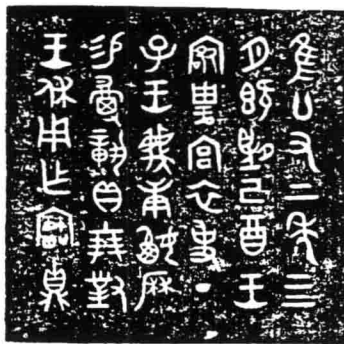 隹廿又二年四
月既望己酉王
客琱宮衣事丁
巳王蔑庚嬴曆
易爵貝十朋對
王休用乍寶貞